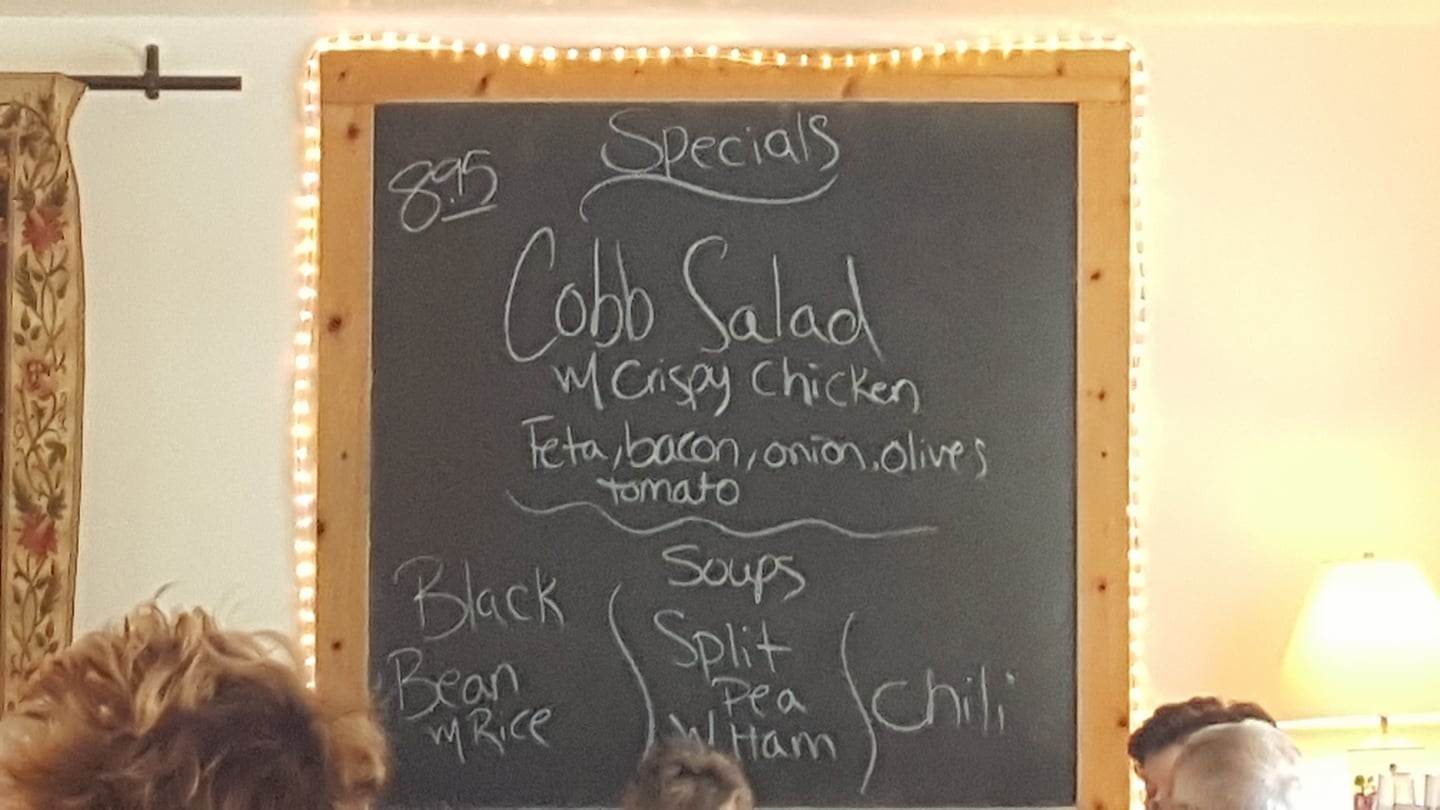 Specials
8.95
Cobb Salad
w/ Crispy Chicken
Feta, bacon, onion, olives
tomato
Soups
Black
Bean
w/ Rice
Split
Pea
w/ Ham
Chili